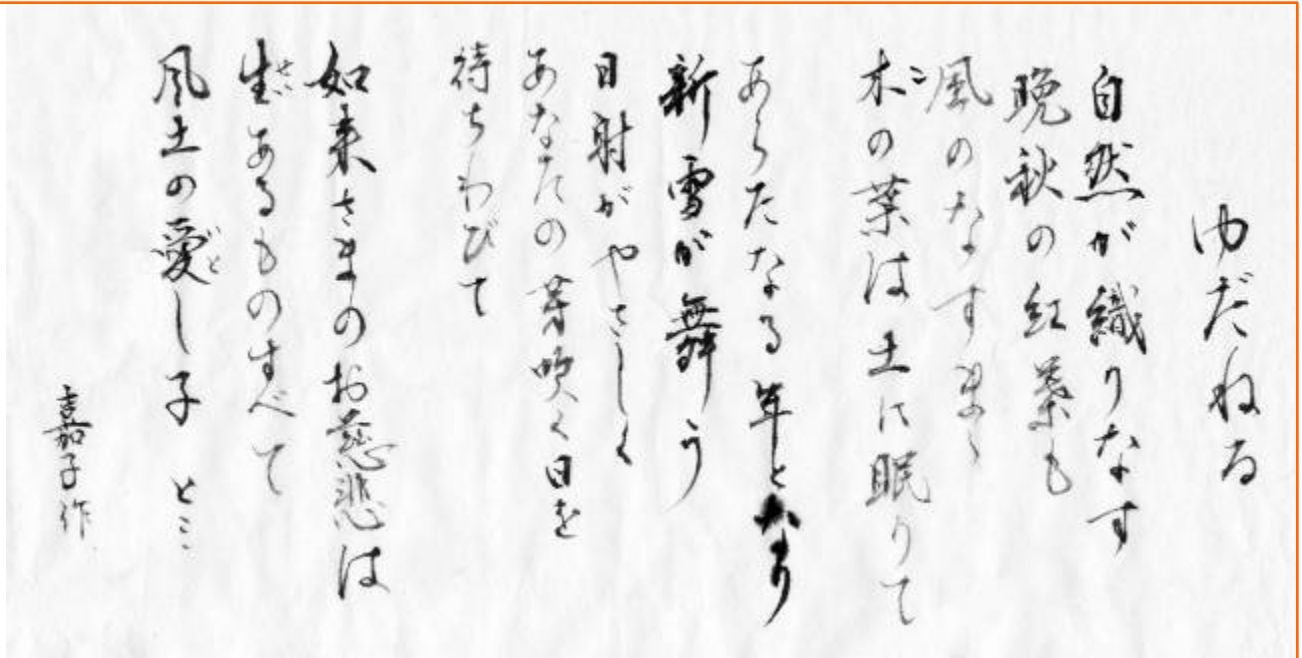 ゆだねる
自然が織りなす
晩秋の紅葉も
風のなすまゝ
木の葉は土に眠りて
あらたなる年となり
新雪が舞う
日射がやさしく
あなたの芽吹く日を
待ちわびて
如来さまのお慈悲は
生あるものすべて
風土の愛し子 と…
嘉子作